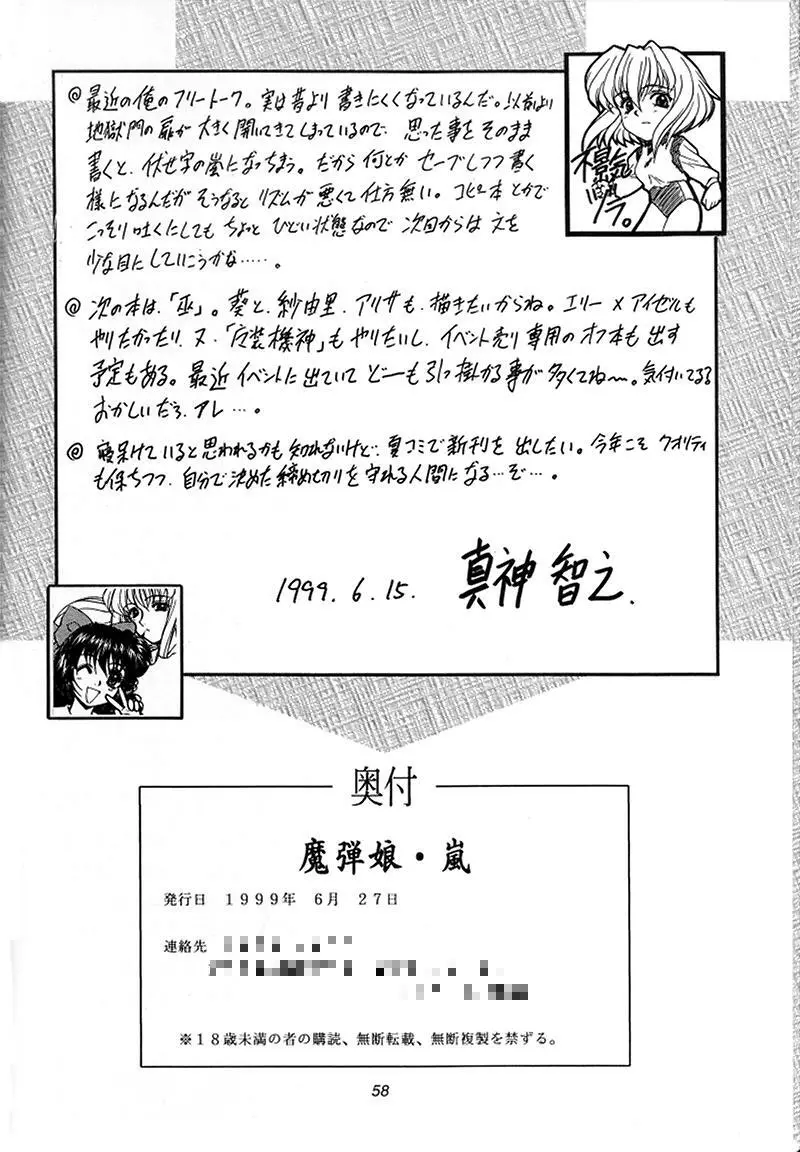 @ 最近の俺のフリートーク。実は昔より書きにくくなっているんだ。以前より
地獄門の扉が大きく開いてきてしまっているので 思った事をそのまま
書くと、伏せ字の嵐になっちまう。だから何とか セーブしつつ書く
様になるんだが そうなると リズムが悪くて仕方無い。コピー本とかで
こっそり吐くにしても ちょっと ひどい状態なので 次回からは 文を
少な目にしていこうかな……。
不景気
ばれ
ノラ。
@ 次の本は、「巫」。葵と、紗由里、アリサも、描きたいからね。エリー×アイゼルも
やりたかったり、又、「機神」もやりたいし、イベント売り専用のオフ本も出す
予定もある。最近イベントに出ていて どーも引っ掛かる事が多くてね〜。気付いてるさ
おかしいだろ、アレ…。
@ 寝呆けていると思われるかも知れないけど、夏コミで新刊を出したい。今年こそ クオリティ
も保ちつつ、自分で決めた締め切りを守れる人間になる…ぞ…。
1999.6.15. 真神 智之.
奥付
魔弾娘・嵐
発行日 1999年 6月 27日
連絡先
※18歳未満の者の購読、無断転載、無断複製を禁ずる。
58